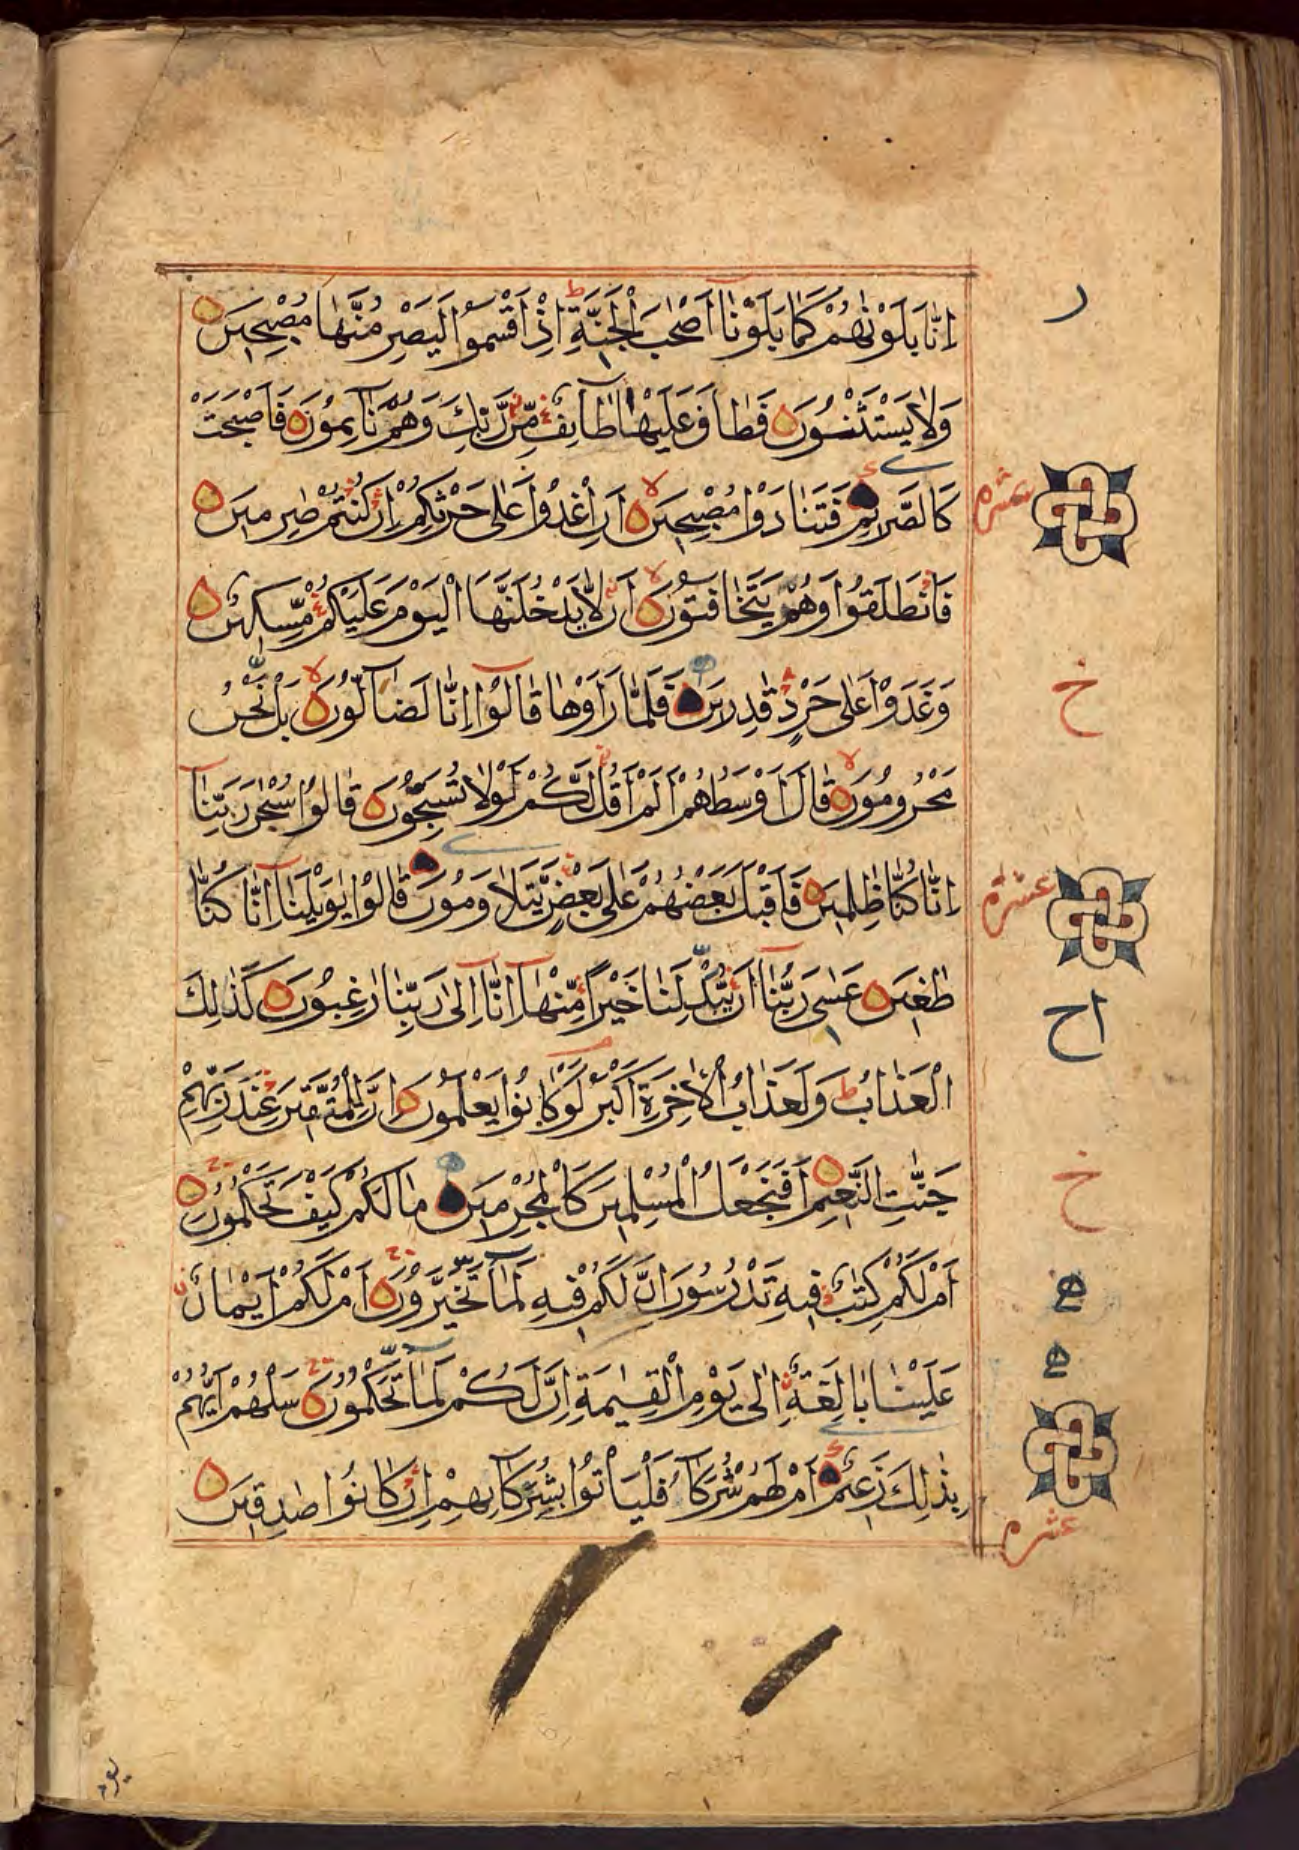 اِنَّا بَلَوْنٰهُمْ كَمَا بَلَوْنَآ اَصْحٰبَ الْجَنَّةِ ط اِذْ اَقْسَمُوْا لَيَصْرِمُنَّهَا مُصْبِحِيْنَ
وَلَا يَسْتَثْنُوْنَ فَطَافَ عَلَيْهَا طَآئِفٌ مِّنْ رَّبِّكَ وَهُمْ نَآئِمُوْنَ فَاَصْبَحَتْ
كَالصَّرِيْمِ فَتَنَادَوْا مُصْبِحِيْنَ لا اَنِ اغْدُوْا عَلٰى حَرْثِكُمْ اِنْ كُنْتُمْ صٰرِمِيْنَ
عشره
فَانْطَلَقُوْا وَهُمْ يَتَخَافَتُوْنَ لا اَنْ لَّا يَدْخُلَنَّهَا الْيَوْمَ عَلَيْكُمْ مِّسْكِيْنٌ
وَغَدَوْا عَلٰى حَرْدٍ قٰدِرِيْنَ فَلَمَّا رَاَوْهَا قَالُوْٓا اِنَّا لَضَآلُّوْنَ لا بَلْ نَحْنُ
خ
مَحْرُوْمُوْنَ لا قَالَ اَوْسَطُهُمْ اَلَمْ اَقُلْ لَّكُمْ لَوْلَا تُسَبِّحُوْنَ قَالُوْا سُبْحٰنَ رَبِّنَآ
اِنَّا كُنَّا ظٰلِمِيْنَ فَاَقْبَلَ بَعْضُهُمْ عَلٰى بَعْضٍ يَّتَلَاوَمُوْنَ قَالُوْا يٰوَيْلَنَآ اِنَّا كُنَّا
عشره
طٰغِيْنَ عَسٰى رَبُّنَآ اَنْ يُّبْدِلَنَا خَيْرًا مِّنْهَآ اِنَّآ اِلٰى رَبِّنَا رٰغِبُوْنَ كَذٰلِكَ
اح
الْعَذَابُ ط وَلَعَذَابُ الْاٰخِرَةِ اَكْبَرُ لَوْ كَانُوْا يَعْلَمُوْنَ اِنَّ لِلْمُتَّقِيْنَ عِنْدَ رَبِّهِمْ
جَنّٰتِ النَّعِيْمِ اَفَنَجْعَلُ الْمُسْلِمِيْنَ كَالْمُجْرِمِيْنَ مَا لَكُمْ كَيْفَ تَحْكُمُوْنَ
خ
اَمْ لَكُمْ كِتٰبٌ فِيْهِ تَدْرُسُوْنَ اِنَّ لَكُمْ فِيْهِ لَمَا تَخَيَّرُوْنَ اَمْ لَكُمْ اَيْمَانٌ
عَلَيْنَا بَالِغَةٌ اِلٰى يَوْمِ الْقِيٰمَةِ اِنَّ لَكُمْ لَمَا تَحْكُمُوْنَ سَلْهُمْ اَيُّهُمْ
بِذٰلِكَ زَعِيْمٌ اَمْ لَهُمْ شُرَكَآءُ فَلْيَاْتُوْا بِشُرَكَآئِهِمْ اِنْ كَانُوْا صٰدِقِيْنَ
عشره
يوم